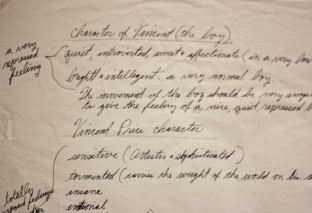 Character of Vincent (the boy)
a very
repressed
feeling
quiet, introverted, sweet + affectionate (in a very low
bright + intelligent a very normal boy
The movement of the boy should be very simple
to give the feeling of a nice, quiet, repressed b
Vincent Price character
sensitive (Artistic + sophisticated)
tormented (carries the weight of the world on his s
insane
emotional
totally
feelings